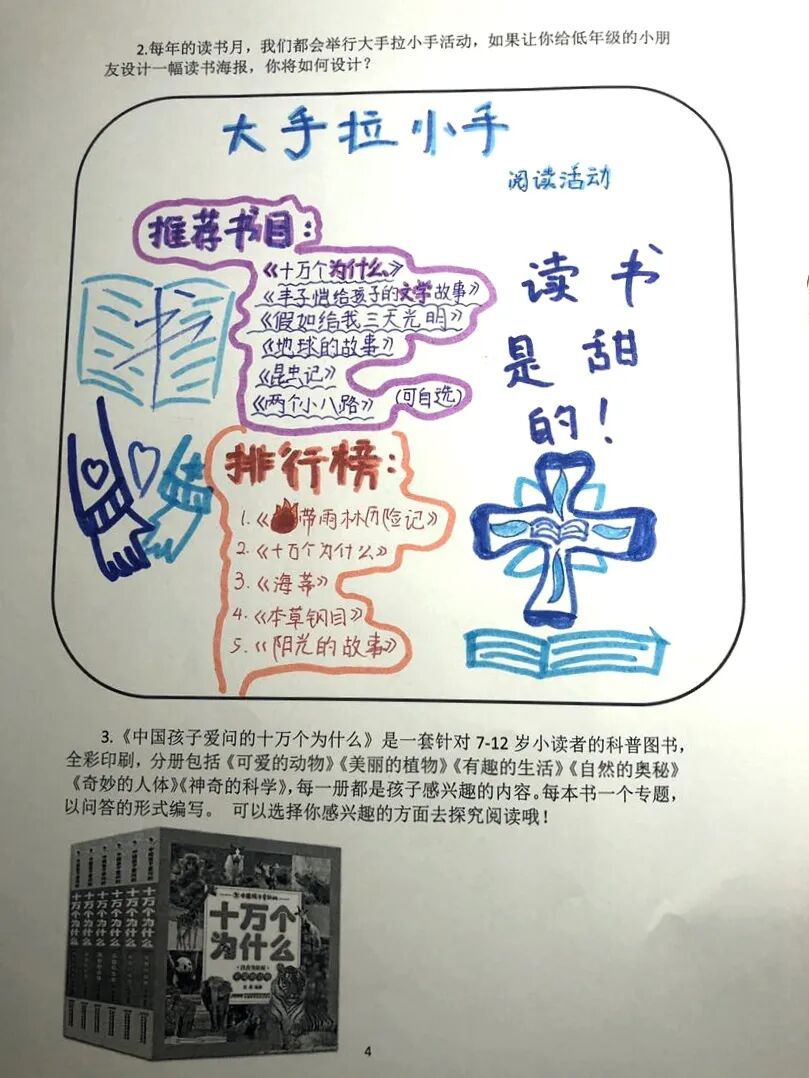 2.每年的读书月，我们都会举行大手拉小手活动，如果让你给低年级的小朋
友设计一幅读书海报，你将如何设计？
大手拉小手
阅读活动
推荐书目：
《十万个为什么》
《丰子恺给孩子的文学故事》
《假如给我三天光明》
《地球的故事》
《昆虫记》
《两个小八路》
(可自选)
书
读书
是甜
的！
排行榜：
1.《带雨林历险记》
2.《十万个为什么》
3.《海蒂》
4.《本草钢目》
5.《阳光的故事》
3.《中国孩子爱问的十万个为什么》是一套针对 7-12 岁小读者的科普图书，
全彩印刷，分册包括《可爱的动物》《美丽的植物》《有趣的生活》《自然的奥秘》
《奇妙的人体》《神奇的科学》，每一册都是孩子感兴趣的内容。每本书一个专题，
以问答的形式编写。 可以选择你感兴趣的方面去探究阅读哦！
十万个为什么
十万个为什么
十万个为什么
十万个为什么
十万个为什么
十万个为什么
十万个
为什么
4